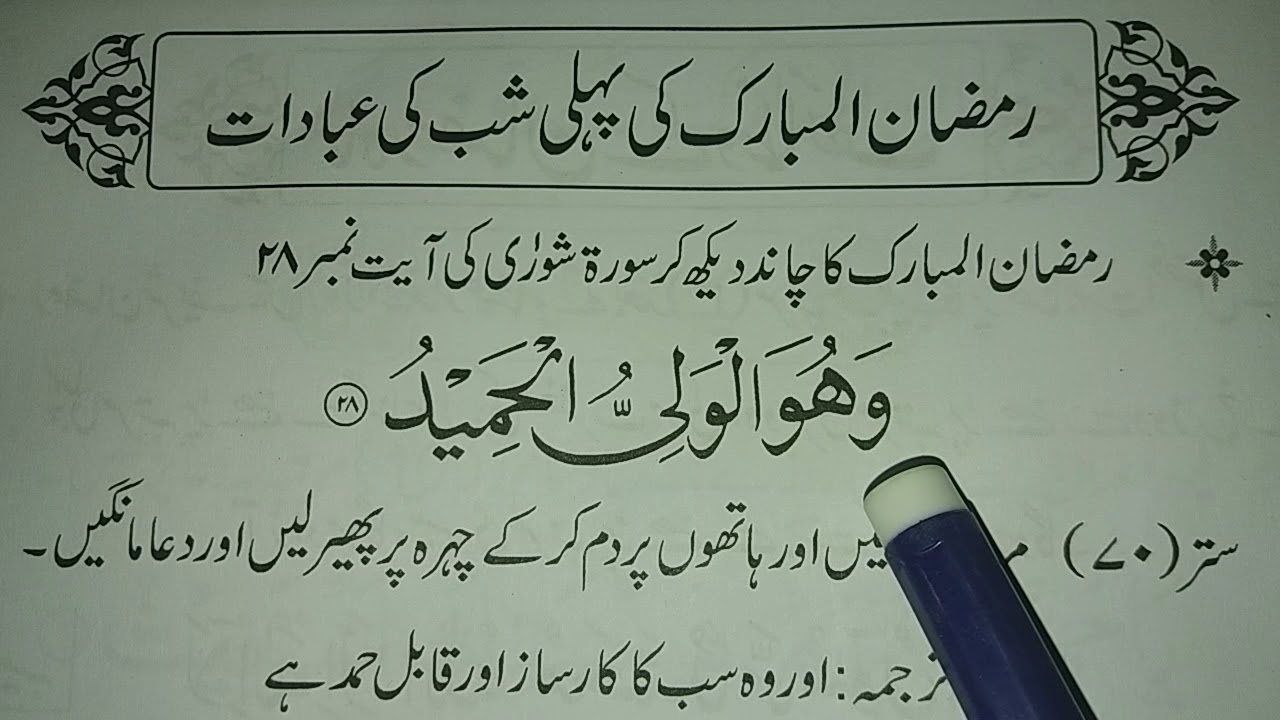 رمضان المبارک کی پہلی شب کی عبادات
رمضان المبارک کا چاند دیکھ کر سورۃ شورٰی کی آیت نمبر ۲۸
وَهُوَ الْوَلِیُّ الْحَمِیْدُ ﴿۲۸﴾
ستر (۷۰) اور ہاتھوں پر دم کر کے چہرہ پر پھیر لیں اور دعا مانگیں۔
ترجمہ: اور وہ سب کا کارساز اور قابل حمد ہے